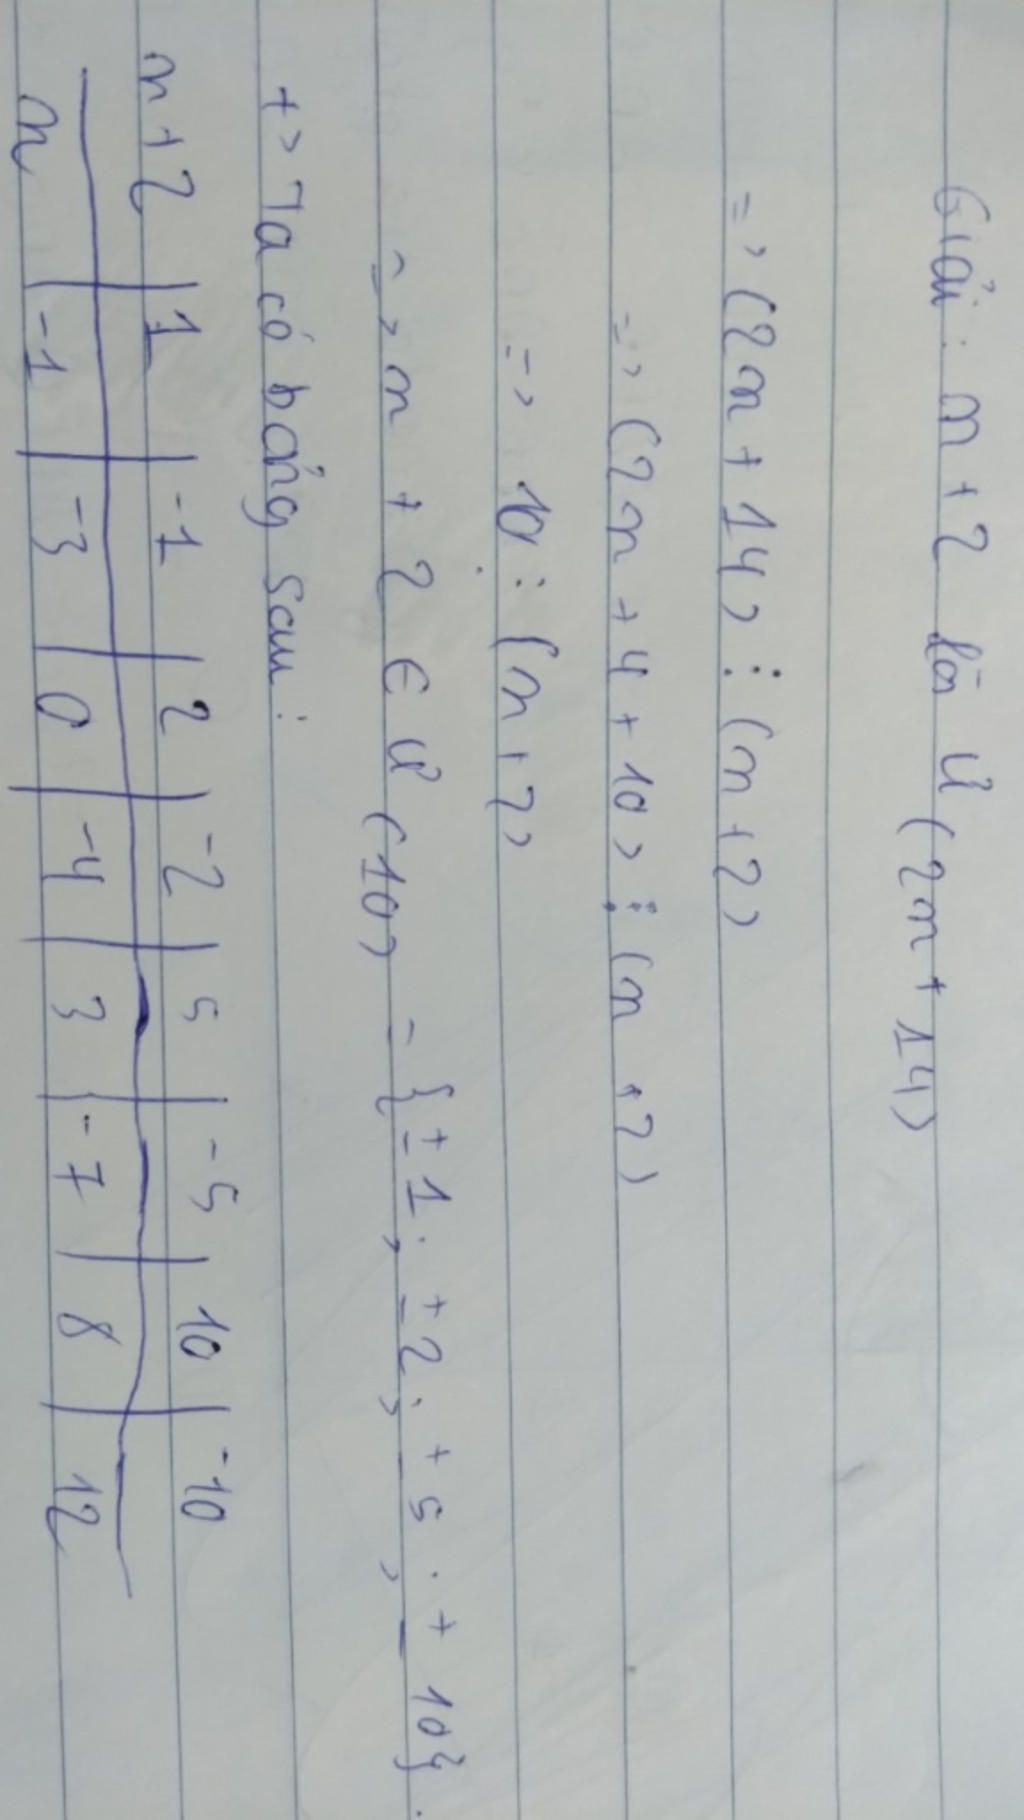 Giải: n + 2 là Ư (2n + 14)
=> (2n + 14) ⋮ (n + 2)
=> (2n + 4 + 10) ⋮ (n + 2)
=> 10 ⋮ (n + 2)
=> n + 2 ∈ Ư (10) = {±1; ±2; ±5; ±10}.
+> Ta có bảng sau:
n + 2 | 1 | -1 | 2 | -2 | 5 | -5 | 10 | -10
n | -1 | -3 | 0 | -4 | 3 | -7 | 8 | 12